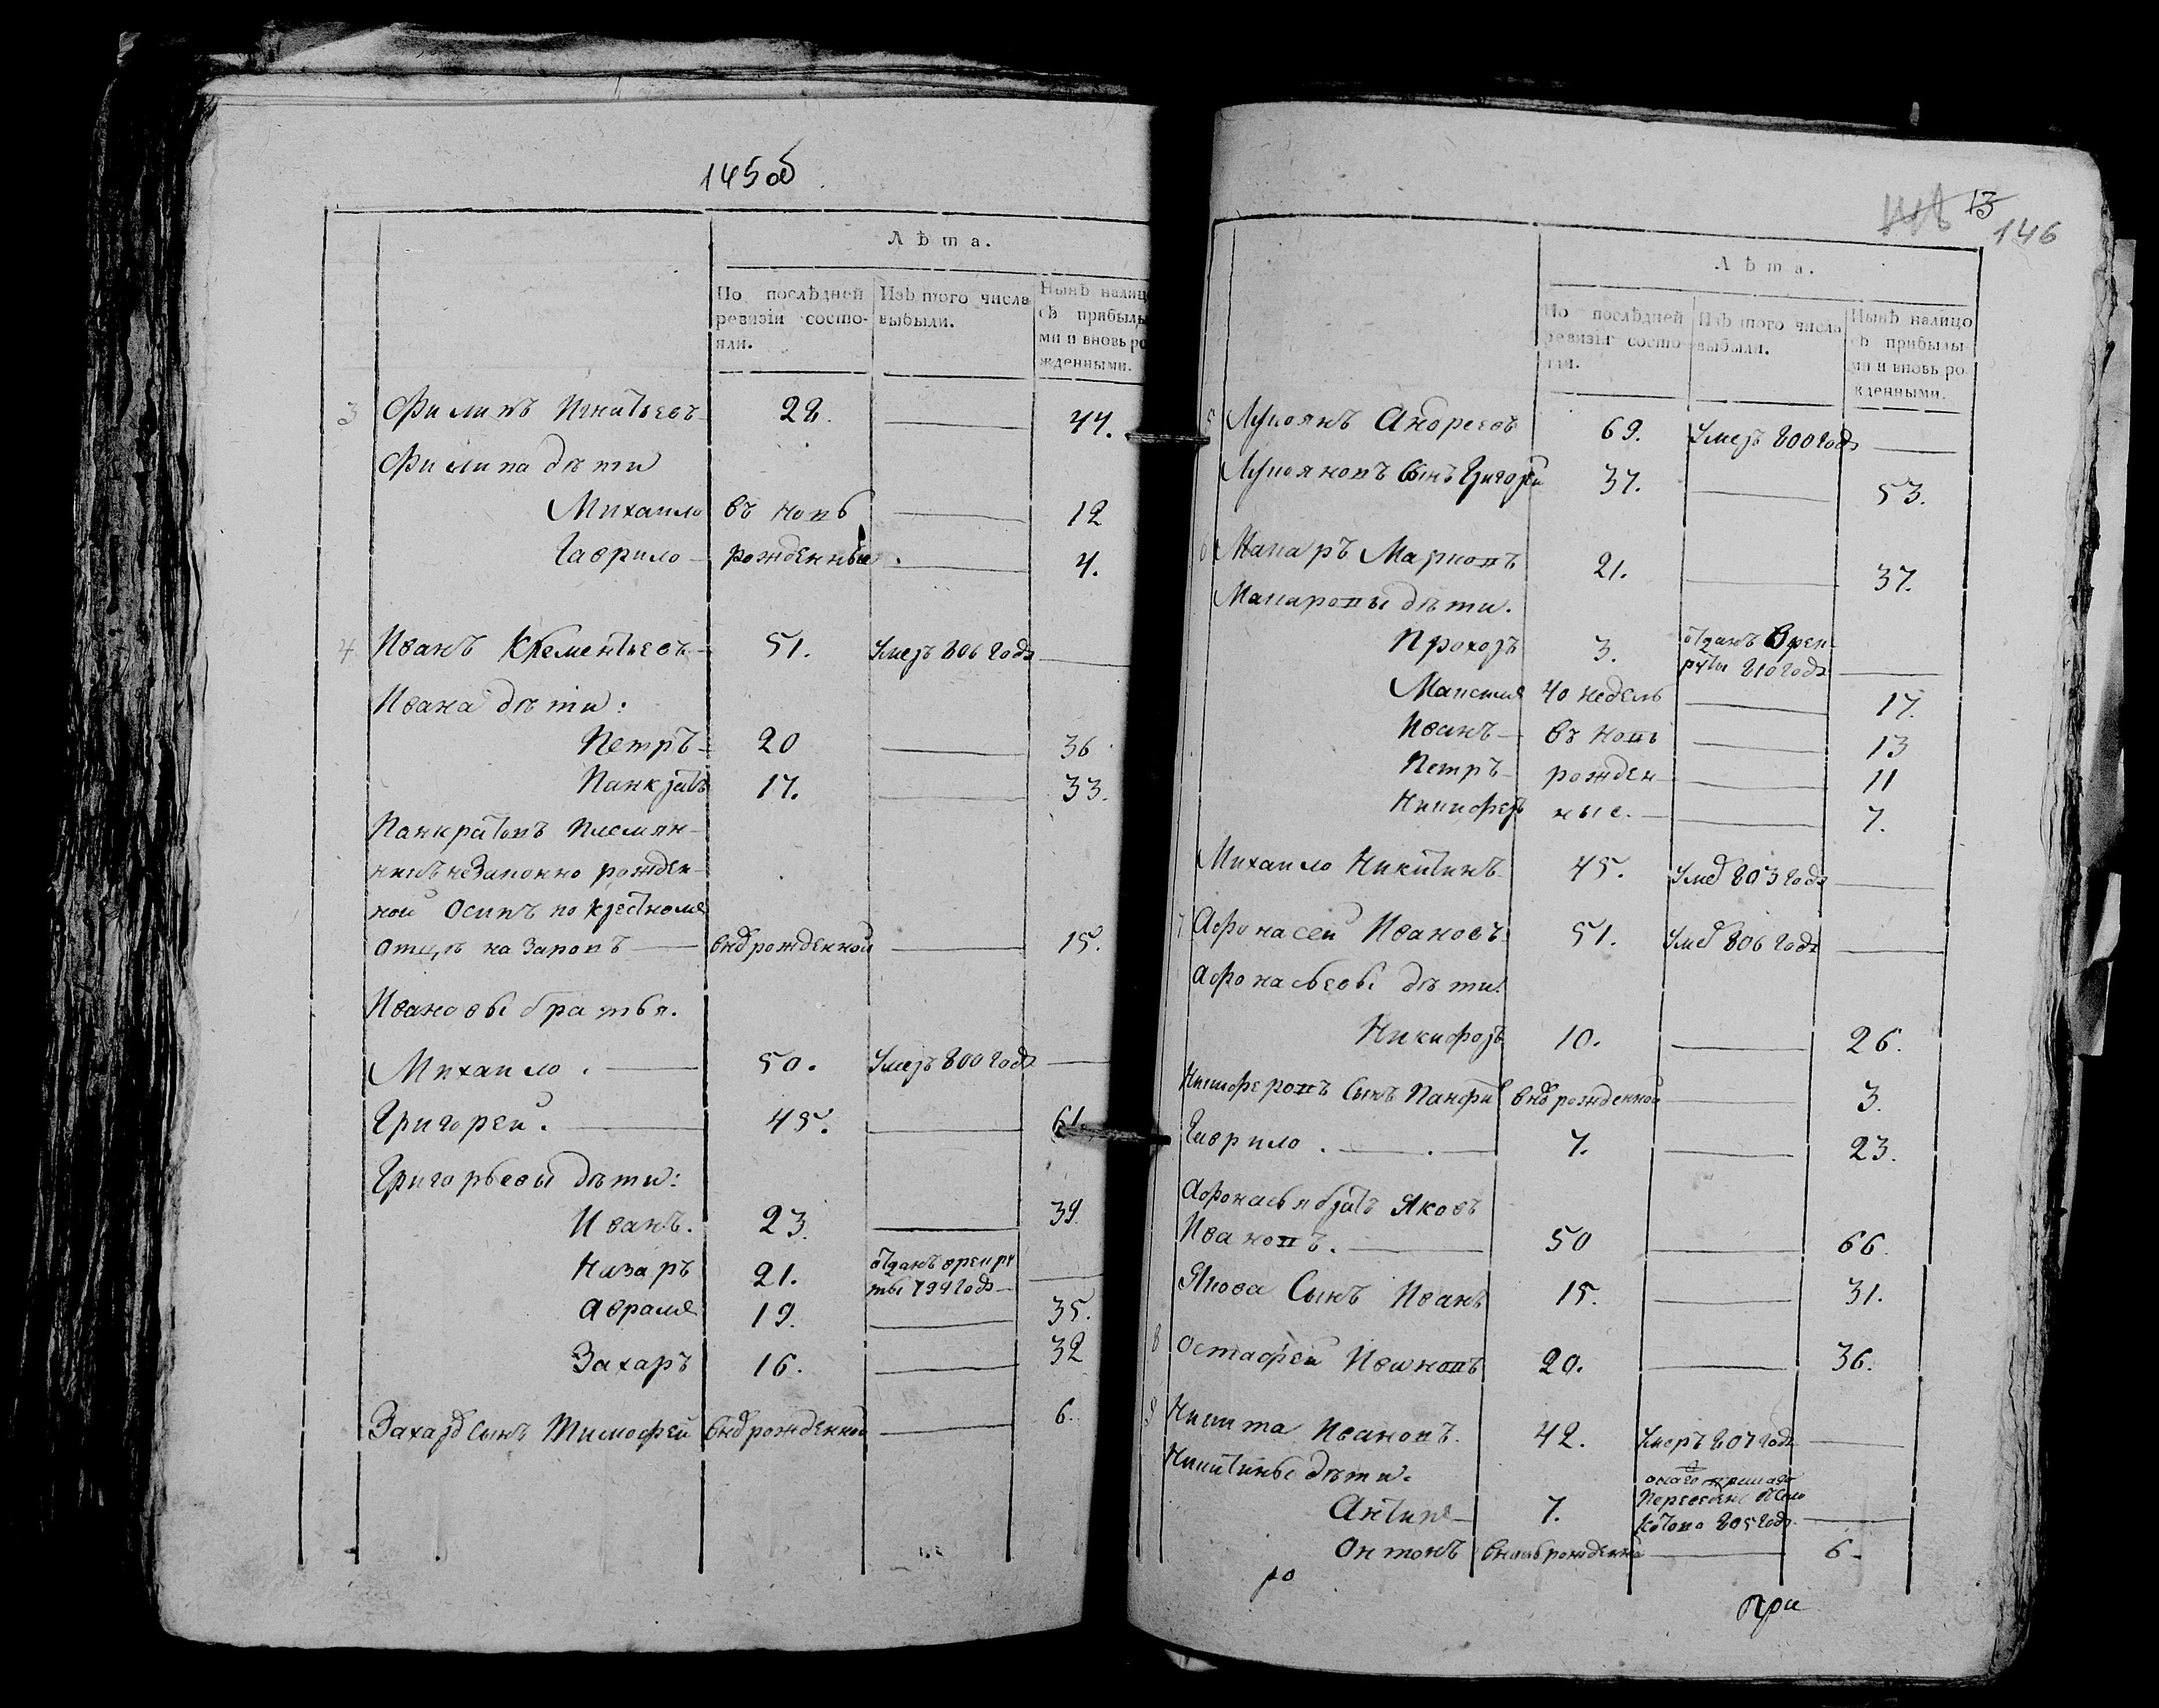 145 об
Лѣта.
По послѣдней ревизіи состо-
яли.
Изъ того числа
выбыли.
Нынѣ налиц
съ прибылы
ми и вновь ро
жденными.
3 Филипъ Игнатьевъ 28. 44.
Филипа дѣти
Михаило въ новь 12
Гаврило рожденные. 4.
4 Иванъ Клементьевъ 51. Умеръ 806 Года
Ивана дѣти:
Петръ 20 36
Панкратъ 17. 33.
Панкратовъ племян-
никъ незаконно рожден-
ной Осипъ по крестноме
отцѣ Назаровъ внов рожденной 15.
Ивановы братья.
Михаило. 50. Умеръ 800 Года
Григорей. 45. 61.
Григорьевы дѣти:
Иванъ. 23. 39.
Назаръ 21. отданъ врекру
ты 799 Года
Аврамъ 19. 35.
Захаръ 16. 32
Захаров сынъ Тимофей внов рожденной 6.
13
146
Лѣта.
По послѣдней
ревизіи состо-
яли.
Изъ того числа
выбыли.
Нынѣ налицо
съ прибылы-
ми и вновь ро
жденными.
5 Лукоянъ Андреевъ 69. Умеръ 800 Года
Лукояновъ сынъ Григорей 37. 53.
6 Макаръ Марковъ 21. 37.
Макаровы дѣти.
Прохоръ 3. отданъ врек-
руты 810 Года
Максимъ 40 недель 17.
Иванъ въ новь 13
Петръ рожден- 11
Никиферъ ные. 7.
Михаило Никитинъ 45. Умер 803 Года
7 Афонасей Ивановъ 51. Умер 806 Года
Афонасьевы дѣти:
Никифоръ 10. 26.
Никиферовъ сынъ Панфил внов рожденной 3.
Гаврило. 7. 23.
Афонасья братъ Яковъ
Ивановъ. 50 66.
Якова сынъ Иванъ 15. 31.
8 Остафей Ивановъ 20. 36.
9 Никита Ивановъ. 42. Умеръ 807 Года
Никитины дѣти.
Антипъ 7. 805 Года
Онтонъ вновь рожденно 6
ро
При